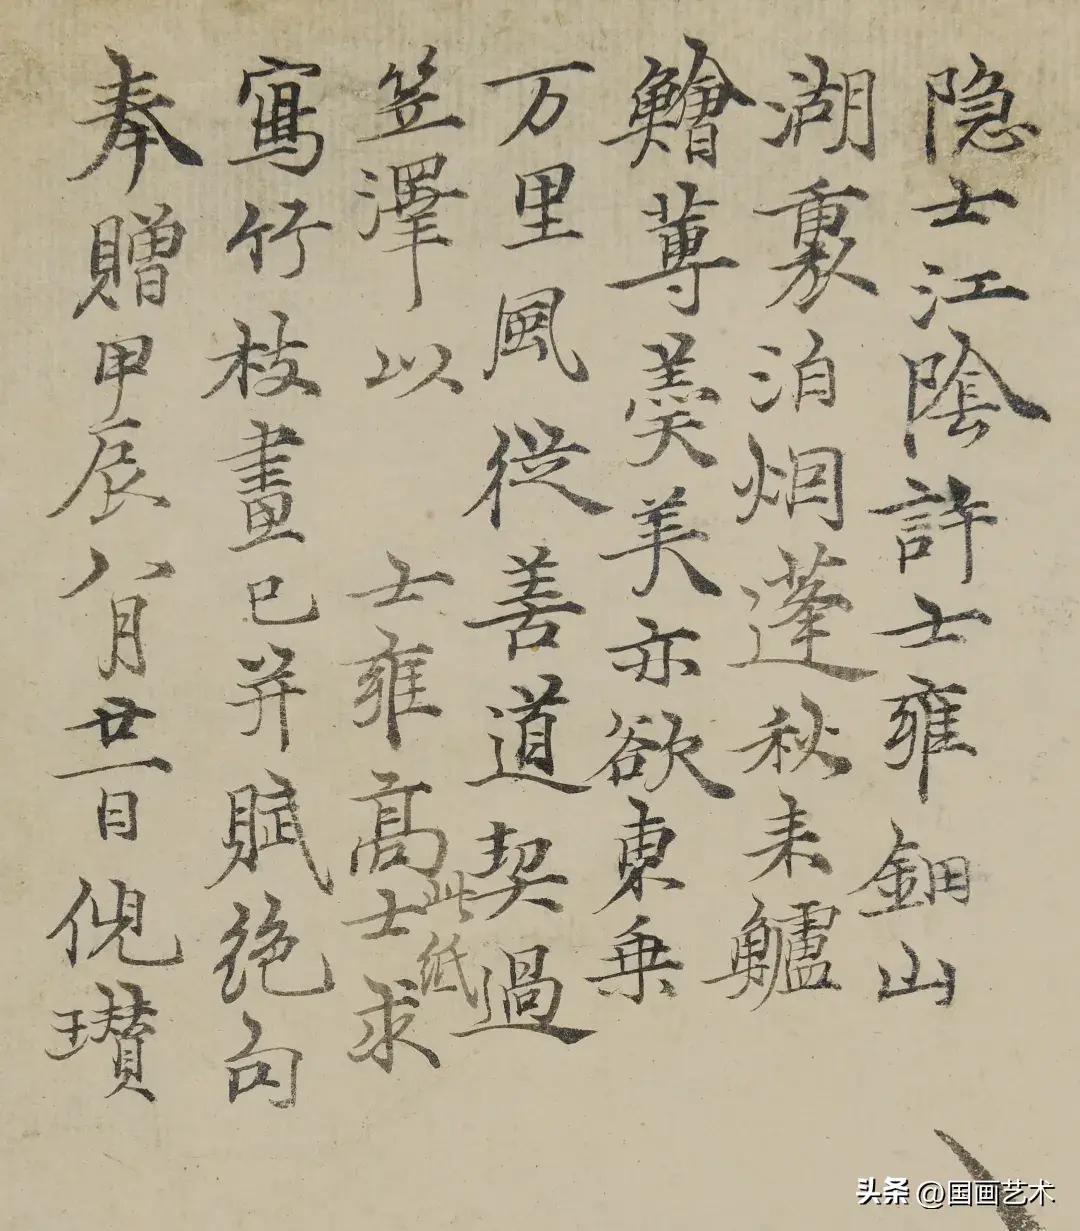 隐士江陰許士雍鈿山
湖裏泊烟蓬秋来鱸
鱠蓴羹美亦欲東乗
万里風從善道契過
此紙
笠澤以 士雍高士求
寫竹枝畫已并賦絶句
奉贈甲辰八月廿一日倪瓚
头条 @国画艺术